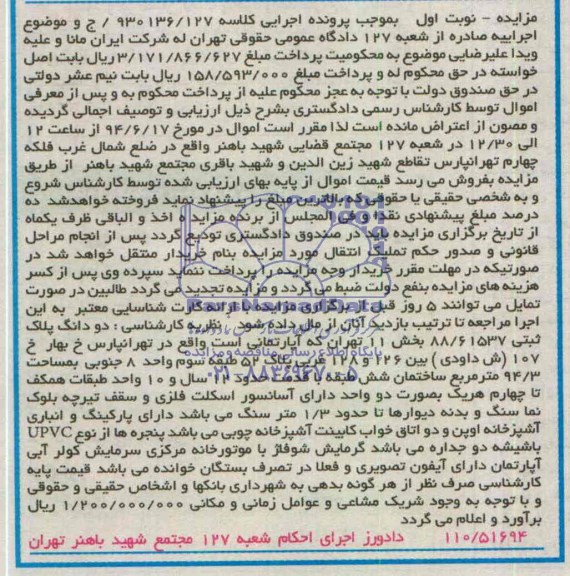 مزایده - نوبت اول بموجب پرونده اجرایی کلاسه ۹۳۰۱۳۶/۱۲۷ / ج و موضوع
اجراییه صادره از شعبه ۱۲۷ دادگاه عمومی حقوقی تهران له شرکت ایران مانا و علیه
ویدا علیرضایی موضوع به محکومیت پرداخت مبلغ ۳/۱۷۱/۸۶۶/۶۲۷ ریال بابت اصل
خواسته در حق محکوم له و پرداخت مبلغ ۱۵۸/۵۹۳/۰۰۰ ریال بابت نیم عشر دولتی
در حق صندوق دولت با توجه به عجز محکوم علیه از پرداخت محکوم به و پس از معرفی
اموال توسط کارشناس رسمی دادگستری بشرح ذیل ارزیابی و توصیف اجمالی گردیده
و مصون از اعتراض مانده است لذا مقرر است اموال در مورخ ۹۴/۶/۱۷ از ساعت ۱۲
الی ۱۲/۳۰ در شعبه ۱۲۷ مجتمع قضایی شهید باهنر واقع در ضلع شمال غرب فلکه
چهارم تهرانپارس تقاطع شهید زین الدین و شهید باقری مجتمع شهید باهنر از طریق
مزایده بفروش می رسد قیمت اموال از پایه بهای ارزیابی شده توسط کارشناس شروع
و به شخصی حقیقی یا حقوقی که بالاترین مبلغ را پیشنهاد نماید فروخته خواهدشد ده
درصد مبلغ پیشنهادی نقدا و فی المجلس از برنده مزایده اخذ و الباقی ظرف یکماه
از تاریخ برگزاری مزایده باید در صندوق دادگستری تودیع گردد پس از انجام مراحل
قانونی و صدور حکم تملیک انتقال مورد مزایده بنام خریدار منتقل خواهد شد در
صورتیکه در مهلت مقرر خریدار وجه مزایده را پرداخت ننماید سپرده وی پس از کسر
هزینه های مزایده بنفع دولت ضبط می گردد و مزایده تجدید می گردد طالبین در صورت
تمایل می توانند ۵ روز قبل از برگزاری مزایده با ارائه کارت شناسایی معتبر به این
اجرا مراجعه تا ترتیب بازدید آنان از مال داده شود. نظریه کارشناسی : دو دانگ پلاک
ثبتی ۸۸/۶۱۵۳۷ بخش ۱۱ تهران که آپارتمانی است واقع در تهرانپارس خ بهار خ
۱۰۷ (ش داودی) بین ۱۲۶ و ۱۲۸ غربی پلاک ۵۲ طبقه سوم واحد ۸ جنوبی بمساحت
۹۴/۳ مترمربع ساختمان شش طبقه با قدمت حدود سال و ۱۰ واحد طبقات همکف
تا چهارم هریک بصورت دو واحد دارای آسانسور اسکلت فلزی و سقف تیرچه بلوک
نما سنگ و بدنه دیوارها تا حدود ۱/۳ متر سنگ می باشد دارای پارکینگ و انباری
آشپزخانه اوپن و دو اتاق خواب کابینت آشپزخانه چوبی می باشد پنجره ها از نوع UPVC
باشیشه دو جداره می باشد گرمایش شوفاژ با موتورخانه مرکزی سرمایش کولر آبی
آپارتمان دارای آیفون تصویری و فعلا در تصرف بستگان خوانده می باشد قیمت پایه
کارشناسی صرف نظر از هر گونه بدهی به شهرداری بانکها و اشخاص حقیقی و حقوقی
و با توجه به وجود شریک مشاعی و عوامل زمانی و مکانی ۱/۲۰۰/۰۰۰/۰۰۰ ریال
برآورد و اعلام می گردد
۱۱۰/۵۱۶۹۴ دادورز اجرای احکام شعبه ۱۲۷ مجتمع شهید باهنر تهران
پایگاه اطلاع رسانی مناقصه و مزایده